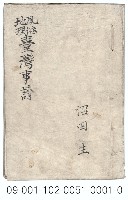 風俗
地理
臺灣事情
沼田生
09 001 102 0051 0001 0